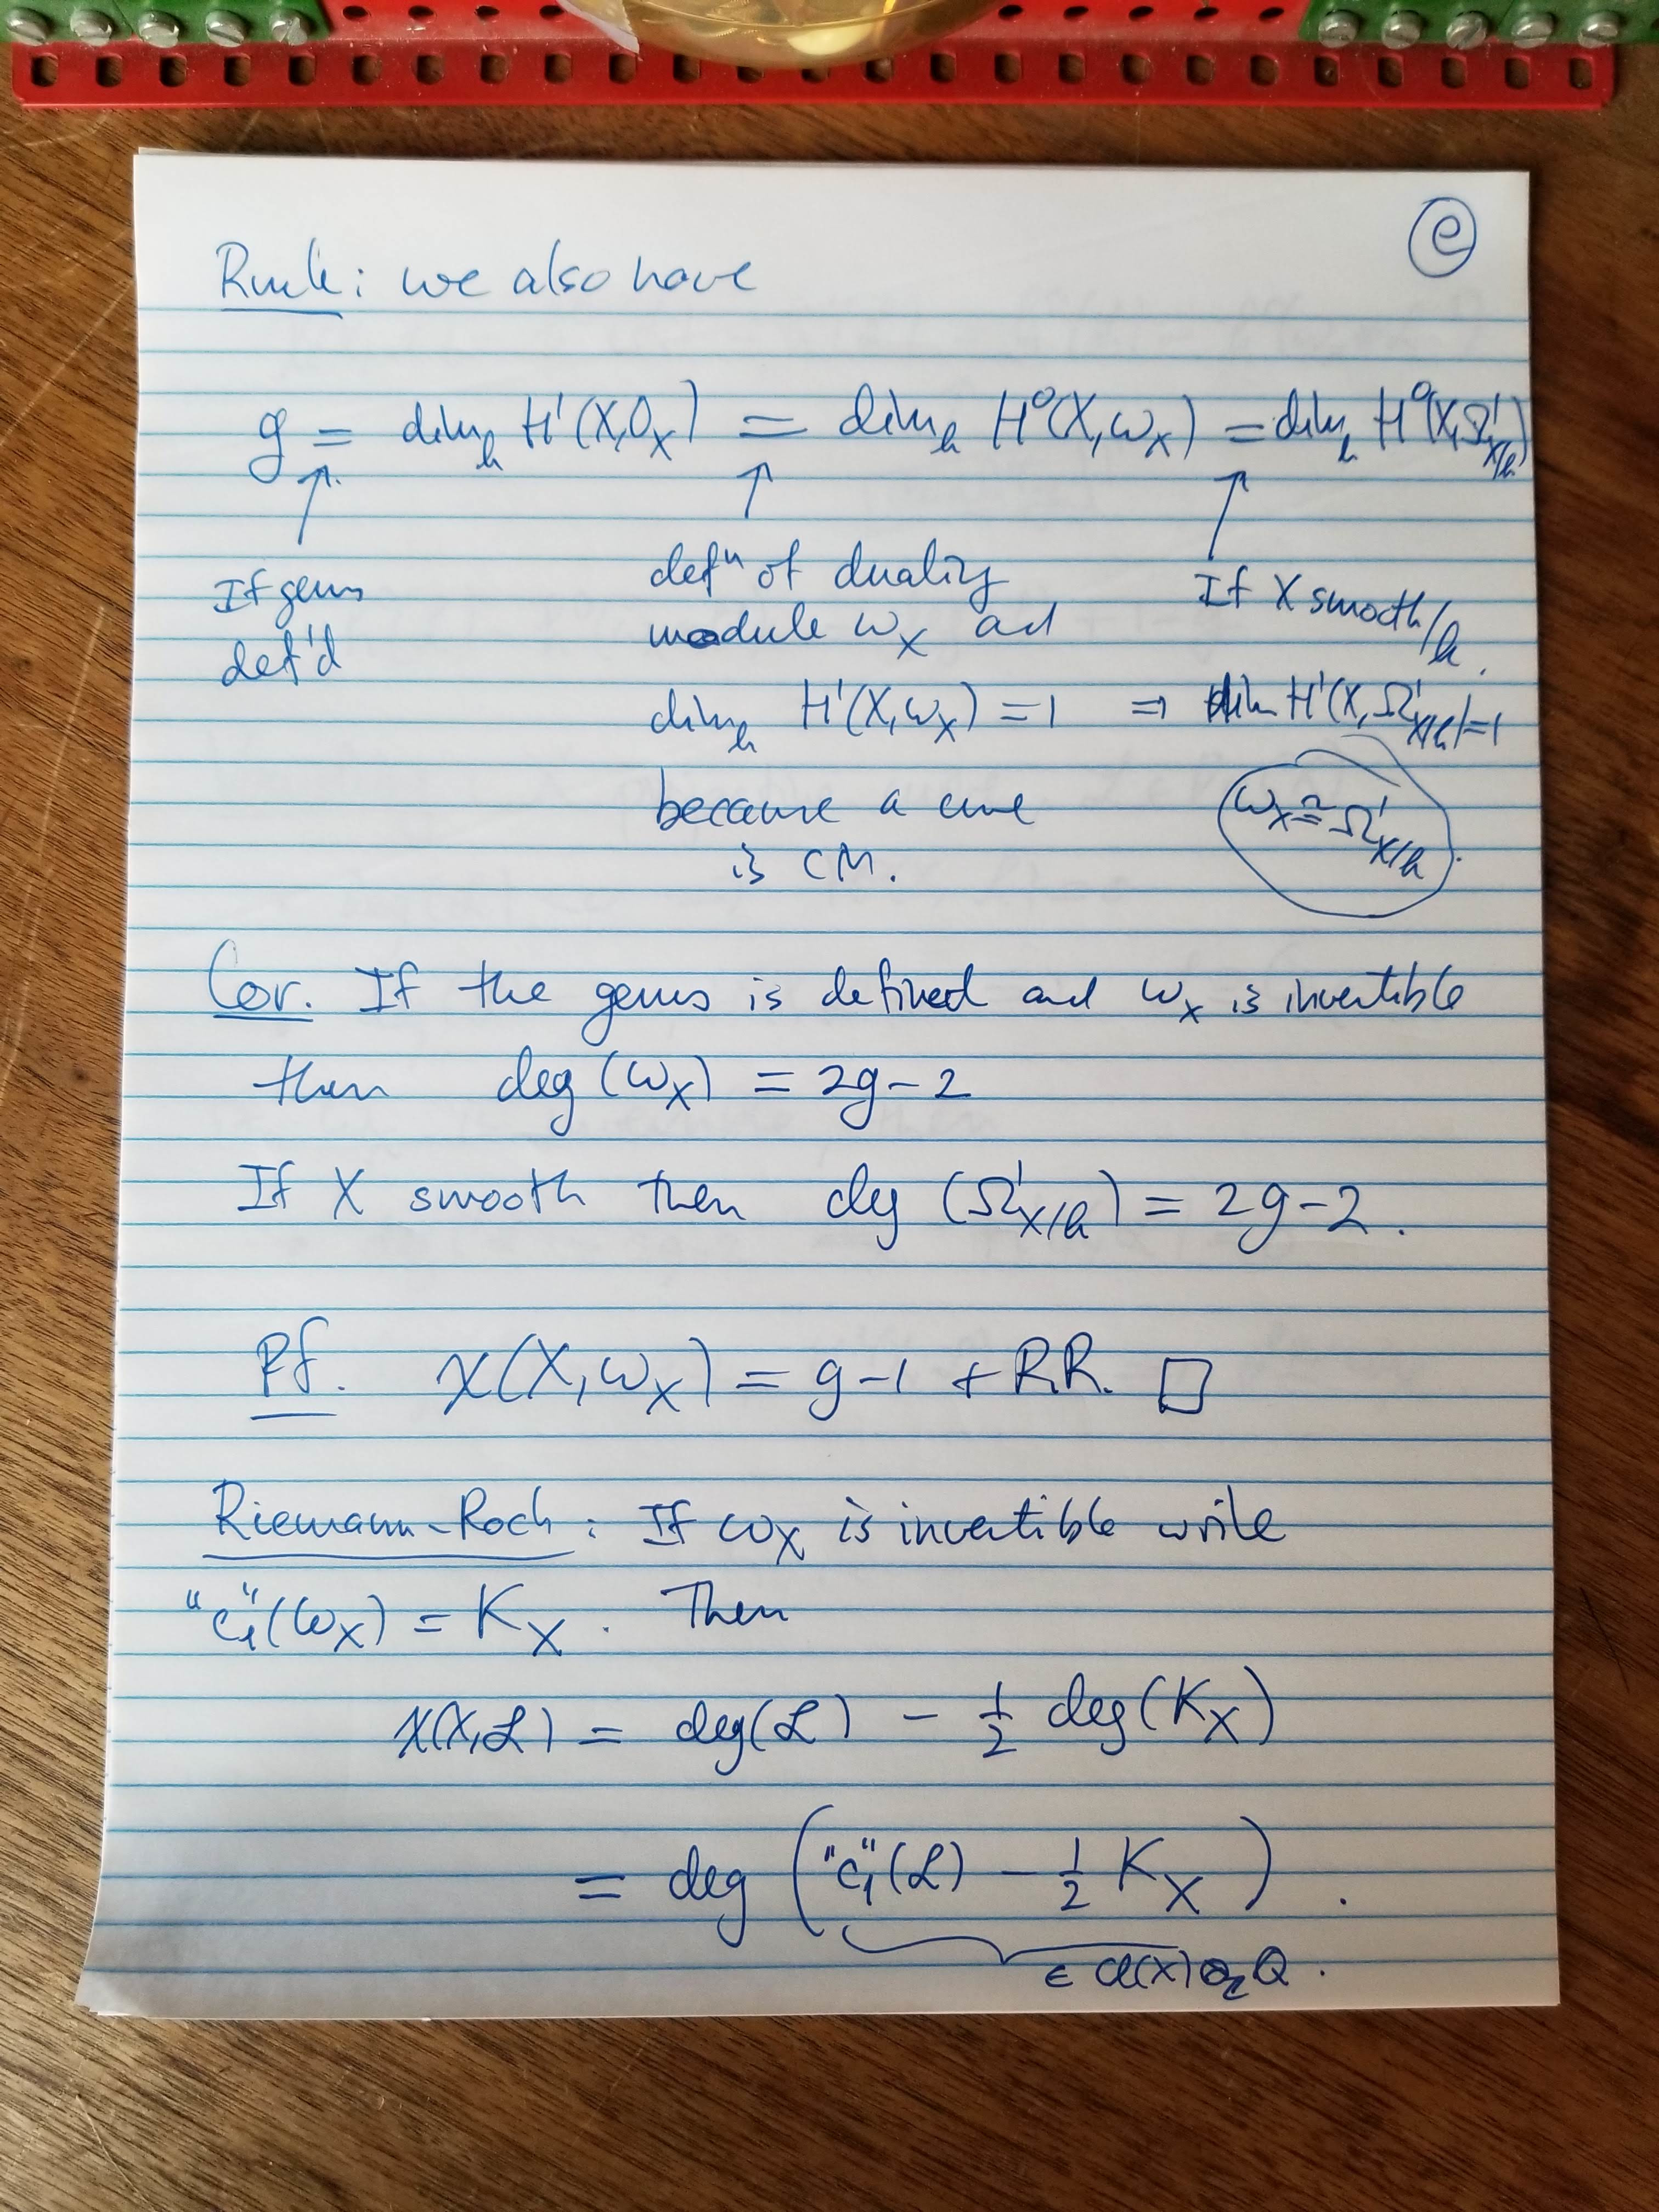 ⓔ
Rmk: we also have
g = dim_k H¹(X, O_X) = dim_k H⁰(X, ω_X) = dim_k H⁰(X, Ω¹_{X/k})
↑ ↑ ↑
If genus def'd
defⁿ of duality module ω_X and
dim_k H¹(X, ω_X) = 1
because a curve
is CM.
If X smooth/k.
⇒ dim H¹(X, Ω¹_{X/k}) = 1
ω_X ≅ Ω¹_{X/k}
Cor. If the genus is defined and ω_X is invertible
then deg(ω_X) = 2g-2
If X smooth then deg(Ω¹_{X/k}) = 2g-2.
Pf. χ(X, ω_X) = g-1 + RR. □
Riemann-Roch: If ω_X is invertible write
"c₁"(ω_X) = K_X. Then
χ(X, ℒ) = deg(ℒ) - ½ deg(K_X)
= deg("c₁"(ℒ) - ½ K_X).
∈ Cl(X) ⊗_ℤ Q.